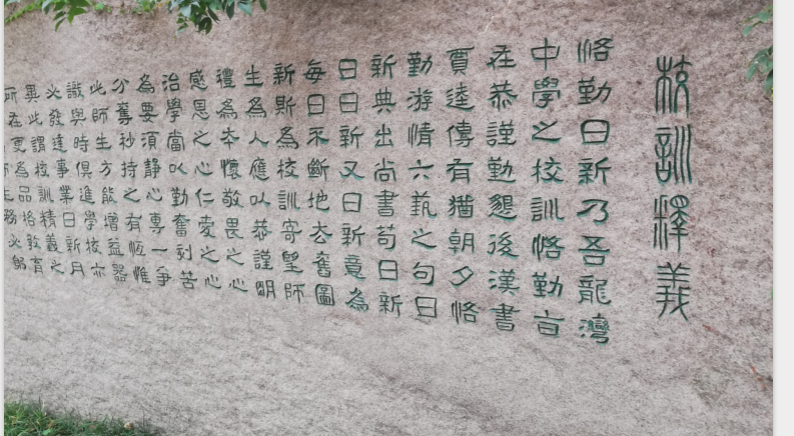 校訓釋義
恪勤日新乃吾龍灣
中學之校訓恪勤言
在恭謹勤懇後漢書
賈逵傳有猶朝夕恪
勤游情六藝之句日
新典出尚書苟日新
日日新又日新意為
每日不斷地去舊圖
新斯為校訓寄望師
生為人應以恭謹明
禮為本懷敬畏之心
感恩之心仁愛之心
治學當以勤奮刻苦
為要須靜心專一爭
分奪秒持之有恆惟
此師生方能增益器
識與時俱進學校亦
必發達事業日新月
異此謂校訓精義之
所在更為品格教育
生務必躬